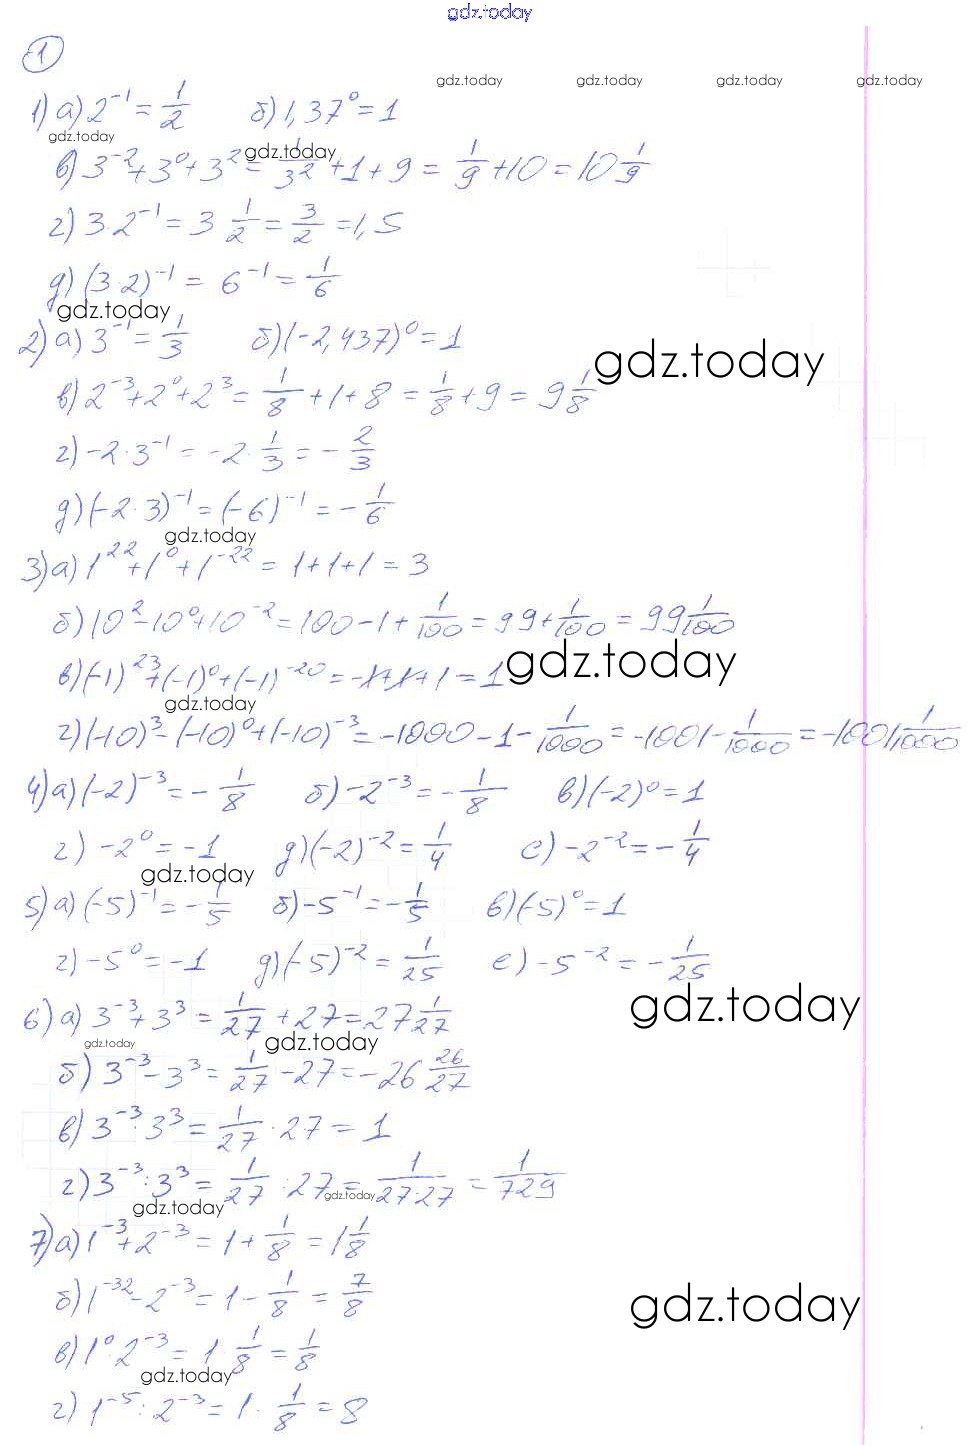 gdz.today
1
gdz.today gdz.today gdz.today gdz.today
1) а) 2^{-1} = 1/2 б) 1,37^0 = 1
gdz.today
в) 3^{-2} + 3^0 + 3^2 = 1/3^2 + 1 + 9 = 1/9 + 10 = 10 1/9
gdz.today
г) 3·2^{-1} = 3 1/2 = 3/2 = 1,5
д) (3·2)^{-1} = 6^{-1} = 1/6
gdz.today
2) а) 3^{-1} = 1/3 б) (-2,437)^0 = 1
gdz.today
в) 2^{-3} + 2^0 + 2^3 = 1/8 + 1 + 8 = 1/8 + 9 = 9 1/8
г) -2·3^{-1} = -2·1/3 = -2/3
д) (-2·3)^{-1} = (-6)^{-1} = -1/6
gdz.today
3) а) 1^{22} + 1^0 + 1^{-22} = 1+1+1 = 3
б) 10^2 - 10^0 + 10^{-2} = 100 - 1 + 1/100 = 99 + 1/100 = 99 1/100
gdz.today
в) (-1)^{23} + (-1)^0 + (-1)^{-20} = -1+1+1 = 1
gdz.today
г) (-10)^3 - (-10)^0 + (-10)^{-3} = -1000 - 1 - 1/1000 = -1001 - 1/1000 = -1001 1/1000
4) а) (-2)^{-3} = -1/8 б) -2^{-3} = -1/8 в) (-2)^0 = 1
г) -2^0 = -1 д) (-2)^{-2} = 1/4 е) -2^{-2} = -1/4
gdz.today
5) а) (-5)^{-1} = -1/5 б) -5^{-1} = -1/5 в) (-5)^0 = 1
г) -5^0 = -1 д) (-5)^{-2} = 1/25 е) -5^{-2} = -1/25
gdz.today
6) а) 3^{-3} + 3^3 = 1/27 + 27 = 27 1/27
gdz.today gdz.today
б) 3^{-3} - 3^3 = 1/27 - 27 = -26 26/27
в) 3^{-3} · 3^3 = 1/27 · 27 = 1
г) 3^{-3} : 3^3 = 1/27 : 27 = 1/27·27 = 1/729
gdz.today gdz.today
7) а) 1^{-3} + 2^{-3} = 1 + 1/8 = 1 1/8
б) 1^{-32} - 2^{-3} = 1 - 1/8 = 7/8
gdz.today
в) 1^0 · 2^{-3} = 1 · 1/8 = 1/8
gdz.today
г) 1^{-5} : 2^{-3} = 1 · 1/8 = 8